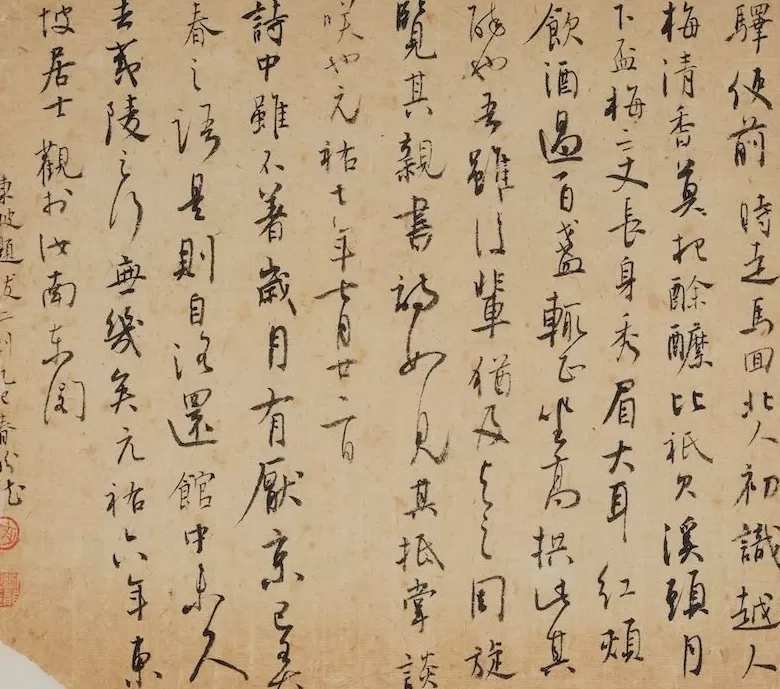 驛使前時走馬回北人初識越人
梅清香莫把酴醾比秖欠溪頭月
下盃梅二丈長身秀眉大耳紅頰
飲酒過百盞輒正坐高拱此其
醉也吾雖後輩猶及与之周旋
覽其親書詩如見其抵掌談
咲也元祐七年七月廿二日
詩中雖不著歲月有厭京已
春之語是則自洛還館中未久
去夷陵之行無幾矣元祐六年東
坡居士觀於汝南東閣
東坡題跋二則乙巳春